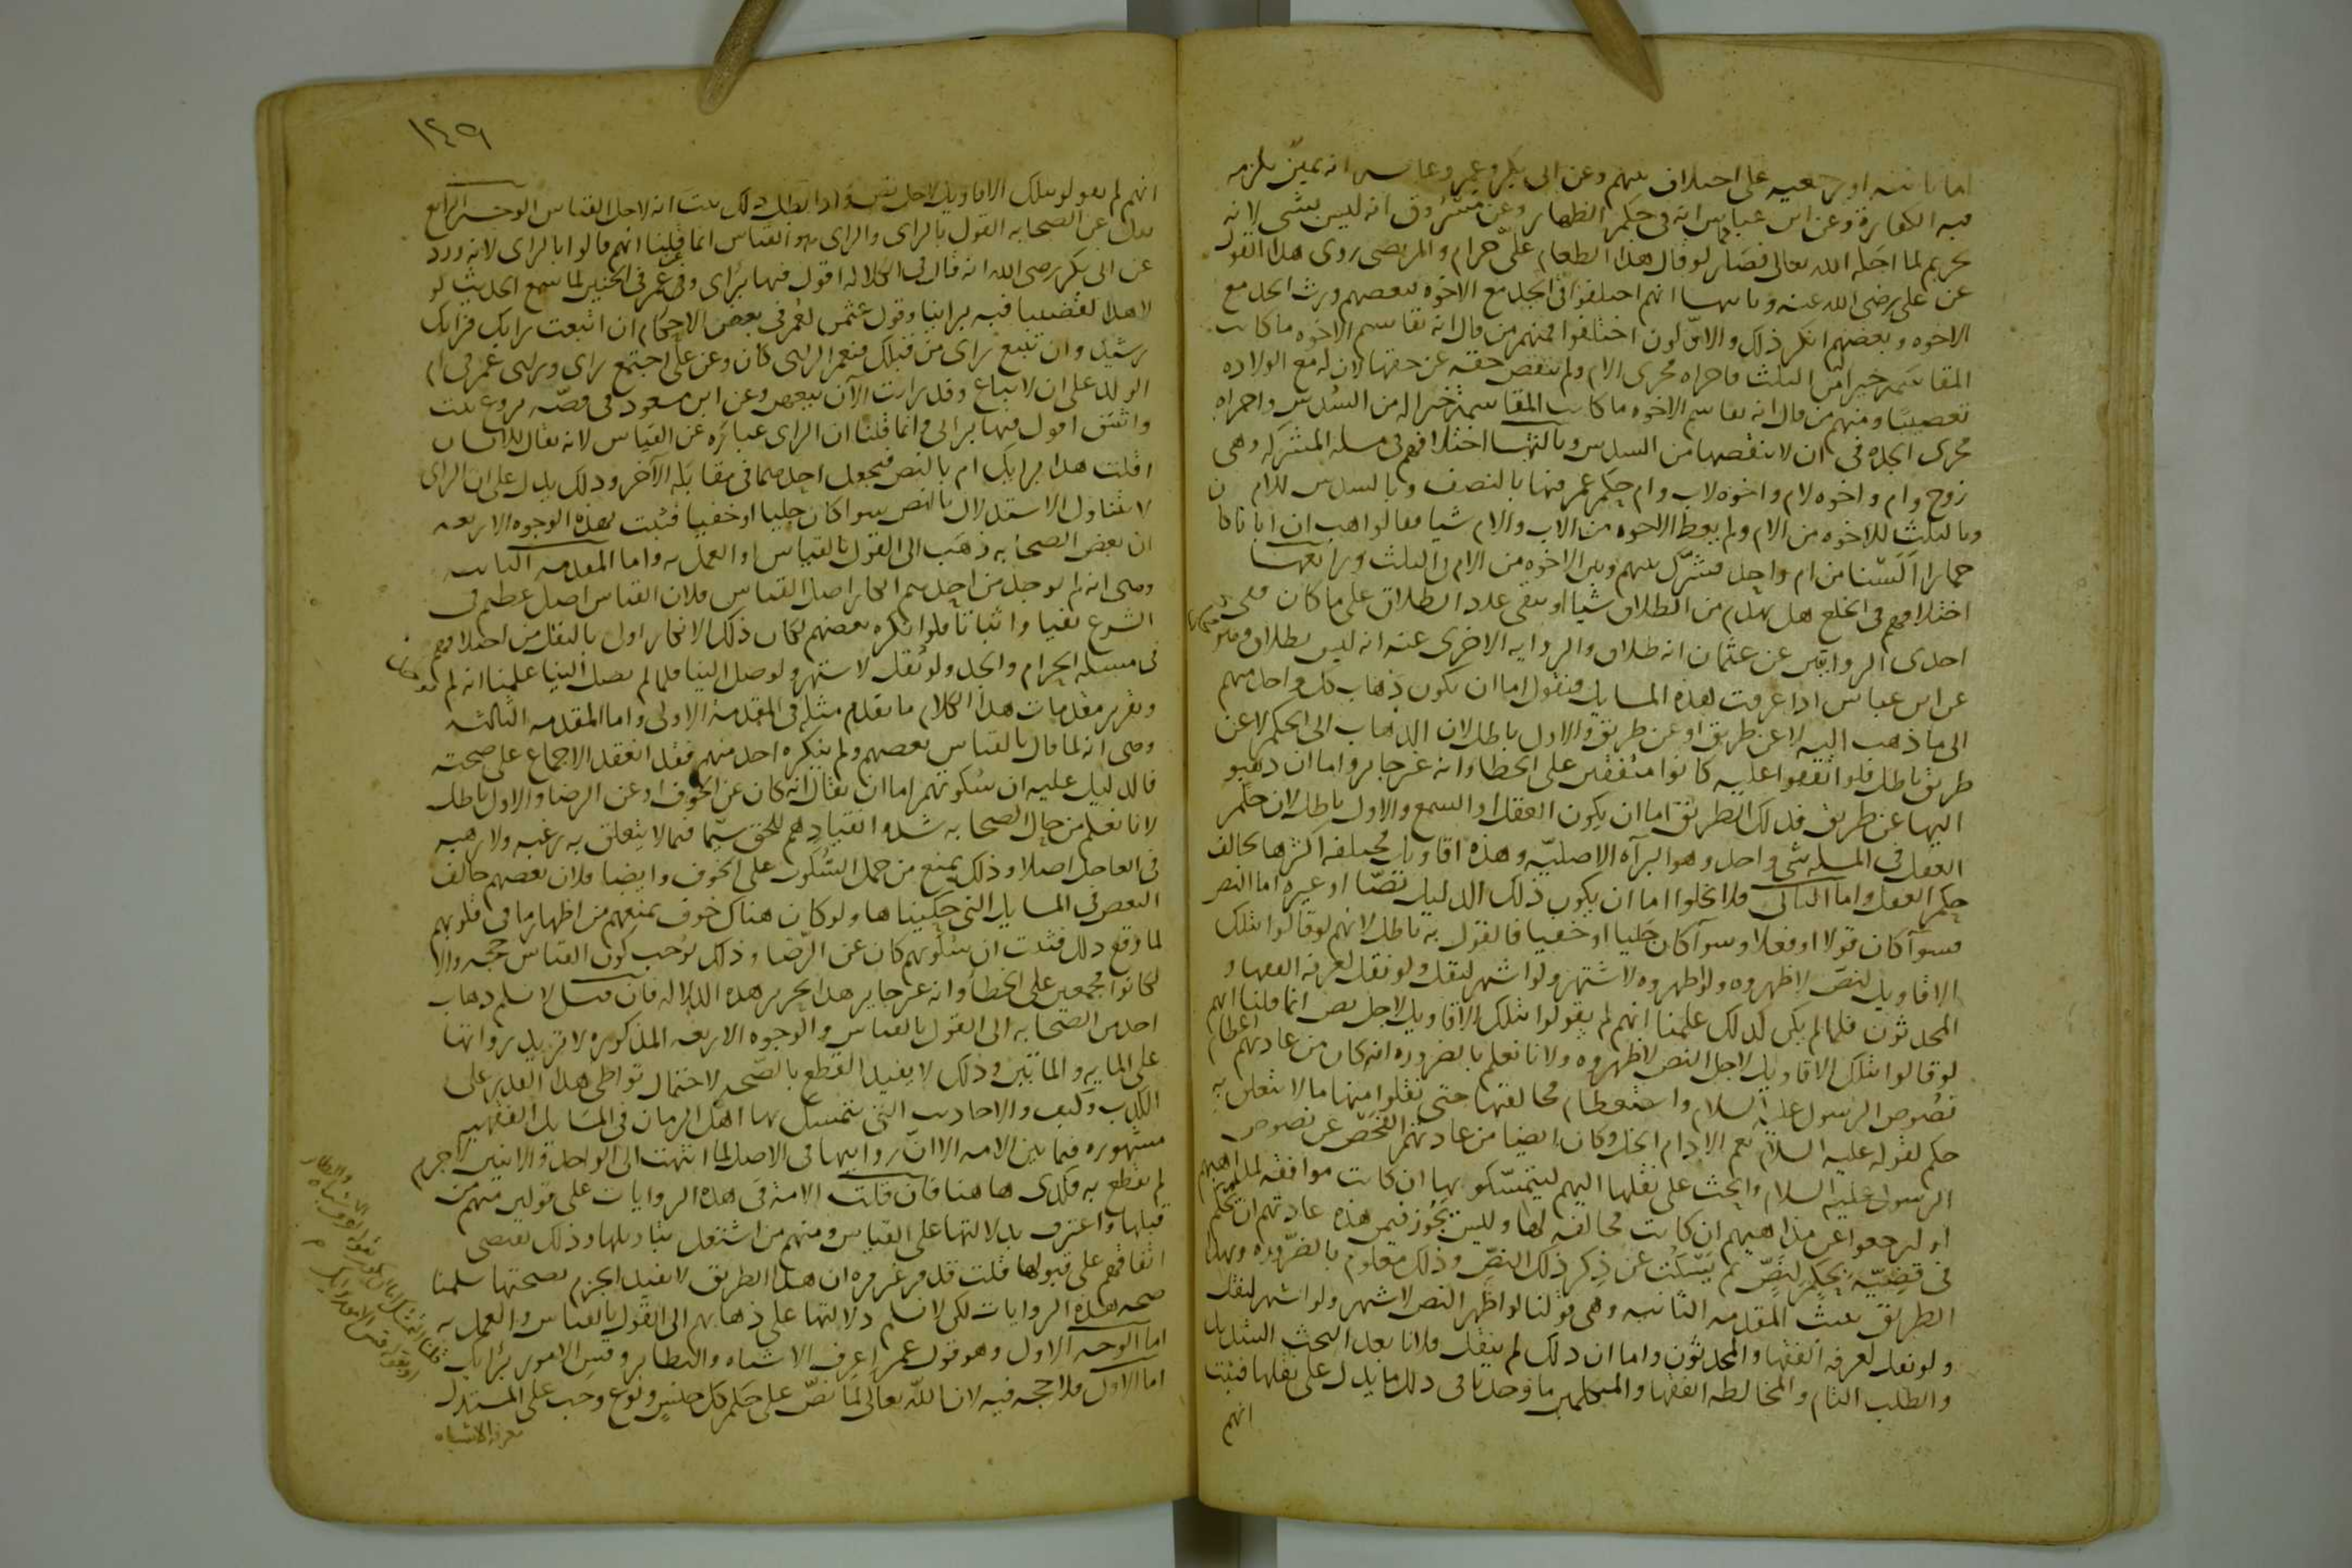 اما باينه او رجعيه على اختلاف بينهم وعن ابى بكر وعمر وعايشه انه يمين يلزم
فيه الكفارة وعن ابن عباس انه فى حكم الظهار وعن مسروق انه ليس بشى لانه
تحريم لما احله الله تعالى فصار كما لو قال هذا الطعام علىّ حرام والمرتضى روى هذا القول
عن على رضى الله عنه وثانيها انهم اختلفوا فى الجد مع الاخوه فبعضهم ورث الجد مع
الاخوه وبعضهم انكر ذلك والاوّلون اختلفوا فمنهم من قال انه يقاسم الاخوه ما كانت
المقاسمة خيرا من الثلث فاجراه مجرى الام ولم ينقص حقه عن حقها لان له مع الولاده
تعصيبا ومنهم من قال انه يقاسم الاخوه ما كانت المقاسمة خيرا له من السدس واجراه
مجرى الجده فى ان لا ينقصها من السدس وثالثها اختلافهم فى مسله المشركه وهى
زوج وام واخوه لام واخوه لاب وام حكم عمر فيها بالنصف وبالسدس للام
وبالثلث للاخوه من الام ولم يعط الاخوه من الاب والام شيا فقالوا هب ان ابانا كان
حمارا السنا من ام واحد فشرّك بينهم وبين الاخوه من الام فى الثلث ورابعها
اختلافهم فى الخلع هل يهدم من الطلاق شيا او يبقى عدد الطلاق على ما كان ففى
احدى الروايتين عن عثمان انه طلاق والروايه الاخرى عنه انه ليس بطلاق وهو
عن ابن عباس اذا عرفت هذه المسايل فنقول اما ان يكون ذهاب كل واحد منهم
الى ما ذهب اليه لا عن طريق او عن طريق والاول باطل لان الذهاب الى الحكم لا عن
طريق باطل فلو اتفقوا عليه كانوا متفقين على الخطا وانه غير جايز واما ان ذهبوا
اليها عن طريق فذلك الطريق اما ان يكون العقل او السمع والاول باطل لان حكم
العقل فى المسله شى واحد وهو البرآه الاصليّه وهذه اقاويل مختلفه اكثرها يخالف
حكم العقل واما الثانى فلا يخلوا اما ان يكون ذلك الدليل نصّا او غيره اما النص
فسوآ كان قولا او فعلا وسوآ كان جليا او خفيا فالقول به باطل لانهم لو قالوا بتلك
الاقاويل لنصّ لاظهروه ولو اظهروه لاشتهر ولو اشتهر لنقل ولو نقل لعرفه الفقها و
المحدثون فلما لم يكن كذلك علمنا انهم لم يقولوا بتلك الاقاويل لاجل نص انما قلنا انهم
لو قالوا بتلك الاقاويل لاجل النص لاظهروه ولانا نعلم بالضروره انه كان من عادتهم اعظام
نصوص الرسول عليه السلام واستعظام مخالفتها حتى نقلوا منها ما لا يتعلق به
حكم لقوله عليه السلام نعم الادام الخل وكان ايضا من عادتهم التفحّص عن نصوص
الرسول عليه السلام والحث على نقلها اليهم ليتمسّكو بها ان كانت موافقه لمذاهبهم
او ليرجعوا عن مذاهبهم ان كانت مخالفه لها وليس يجوز فيمن هذه عادتهم ان يحكم
فى قضيّةٍ بحكمٍ لنصٍّ ثم يسكت عن ذكر ذلك النصّ وذلك معلوم بالضروره وبهذا
الطريق يثبت المقدمه الثانيه وهى قولنا لو اظهر النص لاشتهر ولو اشتهر لنقل
ولو نقل لعرفه الفقها والمحدثون واما ان ذلك لم ينقل فلانا بعد البحث الشديد
والطلب التام والمخالطه الفقها والمتكلمين ما وجدنا فى ذلك ما يدل على نقلها فثبت
انهم
١٤٩
انهم لم يقولو بتلك الاقاويل لاجل نص واذا بطل ذلك ثبت انه لاجل القياس الوجه الرابع
نقل عن الصحابه القول بالراى والراى هو القياس انما قلنا انهم قالوا بالراى لانه ورد
عن ابى بكر رضى الله انه قال فى الكلاله اقول فيها براى وعن عمر فى الجنين لما سمع الحديث لو
لا هذا لقضينا فيه براينا وقول عثمن لعمر فى بعض الاحكام ان اتبعت رايك فرايك
رشيد وان تتبع راى من قبلك فنعم الراى كان وعن على اجتمع راى وراى عمر فى ام
الولد على ان لا تباع وقد رايت الآن بيعهن وعن ابن مسعود فى قصّه بروع بنت
واشق اقول فيها برائى وانما قلنا ان الراى عباره عن القياس لانه يقال للانسان
اقلت هذا برايك ام بالنص فيجعل احدهما فى مقابلة الآخر وذلك يدل على ان الراى
لا يتناول الاستدلال بالنص سوا كان جليا او خفيا فثبت بهذه الوجوه الاربعه
ان بعض الصحابه ذهب الى القول بالقياس والعمل به واما المقدمه الثانيه
وهى انه لم يوجد من احد منهم انكار اصل القياس فلان القياس اصل عظيم فى
الشرع نفيا واثباتا فلو انكره بعضهم لكان ذلك الانكار اولى بالنقل من اختلافهم
فى مسله الحرام والجد ولو نقل لاشتهر ولوصل الينا فلما لم يصل الينا علمنا انه لم
وتقرير مقدمات هذا الكلام ما تقدم مثله فى المقدمة الاولى واما المقدمه الثالثه
وهى انه لما قال بالقياس بعضهم ولم ينكره احد منهم فقد انعقد الاجماع على صحته
فالدليل عليه ان سكوتهم اما ان يقال انه كان عن الخوف او عن الرضا والاول باطل
لانا نعلم من حال الصحابه شده انقيادهم للحق سيّما فيما لا يتعلق به رغبه ولا رهبه
فى العاجل اصلا وذلك يمنع من حمل السكوت على الخوف وايضا فلان بعضهم خالف
البعض فى المسايل التى حكيناها ولو كان هناك خوف يمنعهم من اظهار ما فى قلوبهم
لما وقع ذلك فثبت ان سكوتهم كان عن الرّضا وذلك يوجب كون القياس حجه والا
لكانوا مجمعين على الخطأ وانه غير جايز هذا تحرير هذه الدلاله فان قيل لا نسلم ذهاب
احد من الصحابه الى القول بالقياس والوجوه الاربعه المذكوره لا تزيد رواتها
على المايه والماتين وذلك لا يفيد القطع بالصّحه لاحتمال تواطى هذا القدر على
الكذب وكيف والاحاديث التى يتمسك بها اهل الزمان فى المسايل الفقهيه
مشهوره فيما بين الامه الا انّ روايتها فى الاصل لما انتهت الى الواحد والاثنين لا جرم
لم نقطع به فكذى هاهنا فان قلت الامة فى هذه الروايات على قولين منهم من
قبلها واعترف بدلالتها على القياس ومنهم من اشتغل بتاويلها وذلك يقتضى
اتفاقهم على قبولها قلت قد مر غير مره ان هذا الطريق لا يفيد الجزم بصحتها سلمنا
صحه هذه الروايات لكن لا نسلم دلالتها على ذهابهم الى القول بالقياس والعمل به
اما الوجه الاول وهو قول عمر اعرف الاشباه والنظاير وقس الامور برايك
اما الاول فلا حجه فيه لان الله تعالى لمّا نصّ على حكم كل جنس ونوع وجب على المستدل
معرفه الاشباه